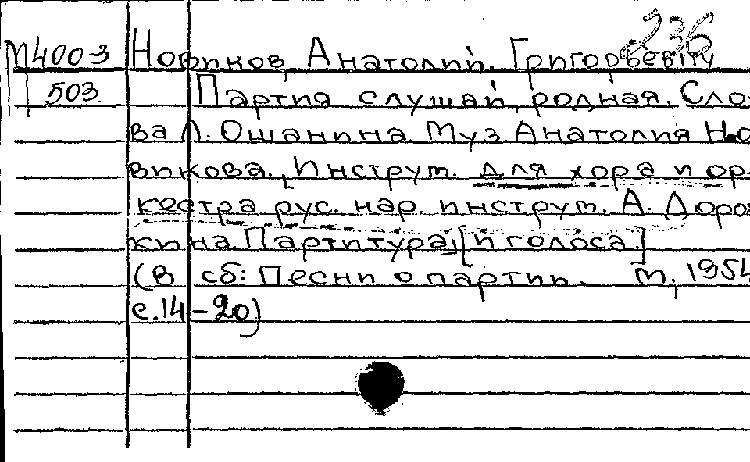 236
М4003 Новиков, Анатолий Григорьевич
503 Партия слушай, родная. Сло-
ва Л. Ошанина Муз Анатолия Но-
викова. Инструм. для хора и ор-
кестра рус. нар. инструм. А. Дорож-
кина Партитура, [и голоса]
(В сб: Песни о партии. М, 1954
с.14-20)